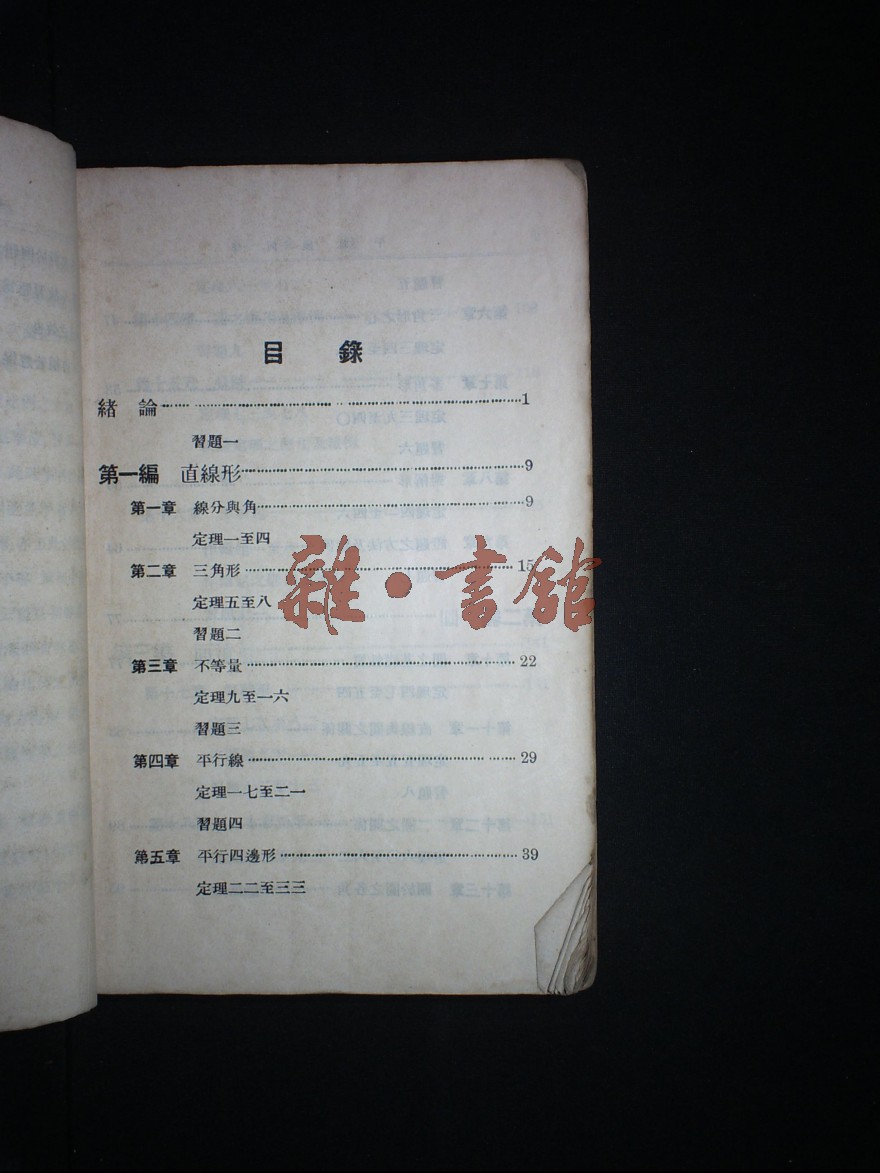 目 錄
緒 論……1
習題一
第一編 直線形……9
第一章 線分與角……9
定理一至四
第二章 三角形……15
定理五至八
習題二
第三章 不等量……22
定理九至一六
習題三
第四章 平行線……29
定理一七至二一
習題四
第五章 平行四邊形……39
定理二二至三三
雜·書館